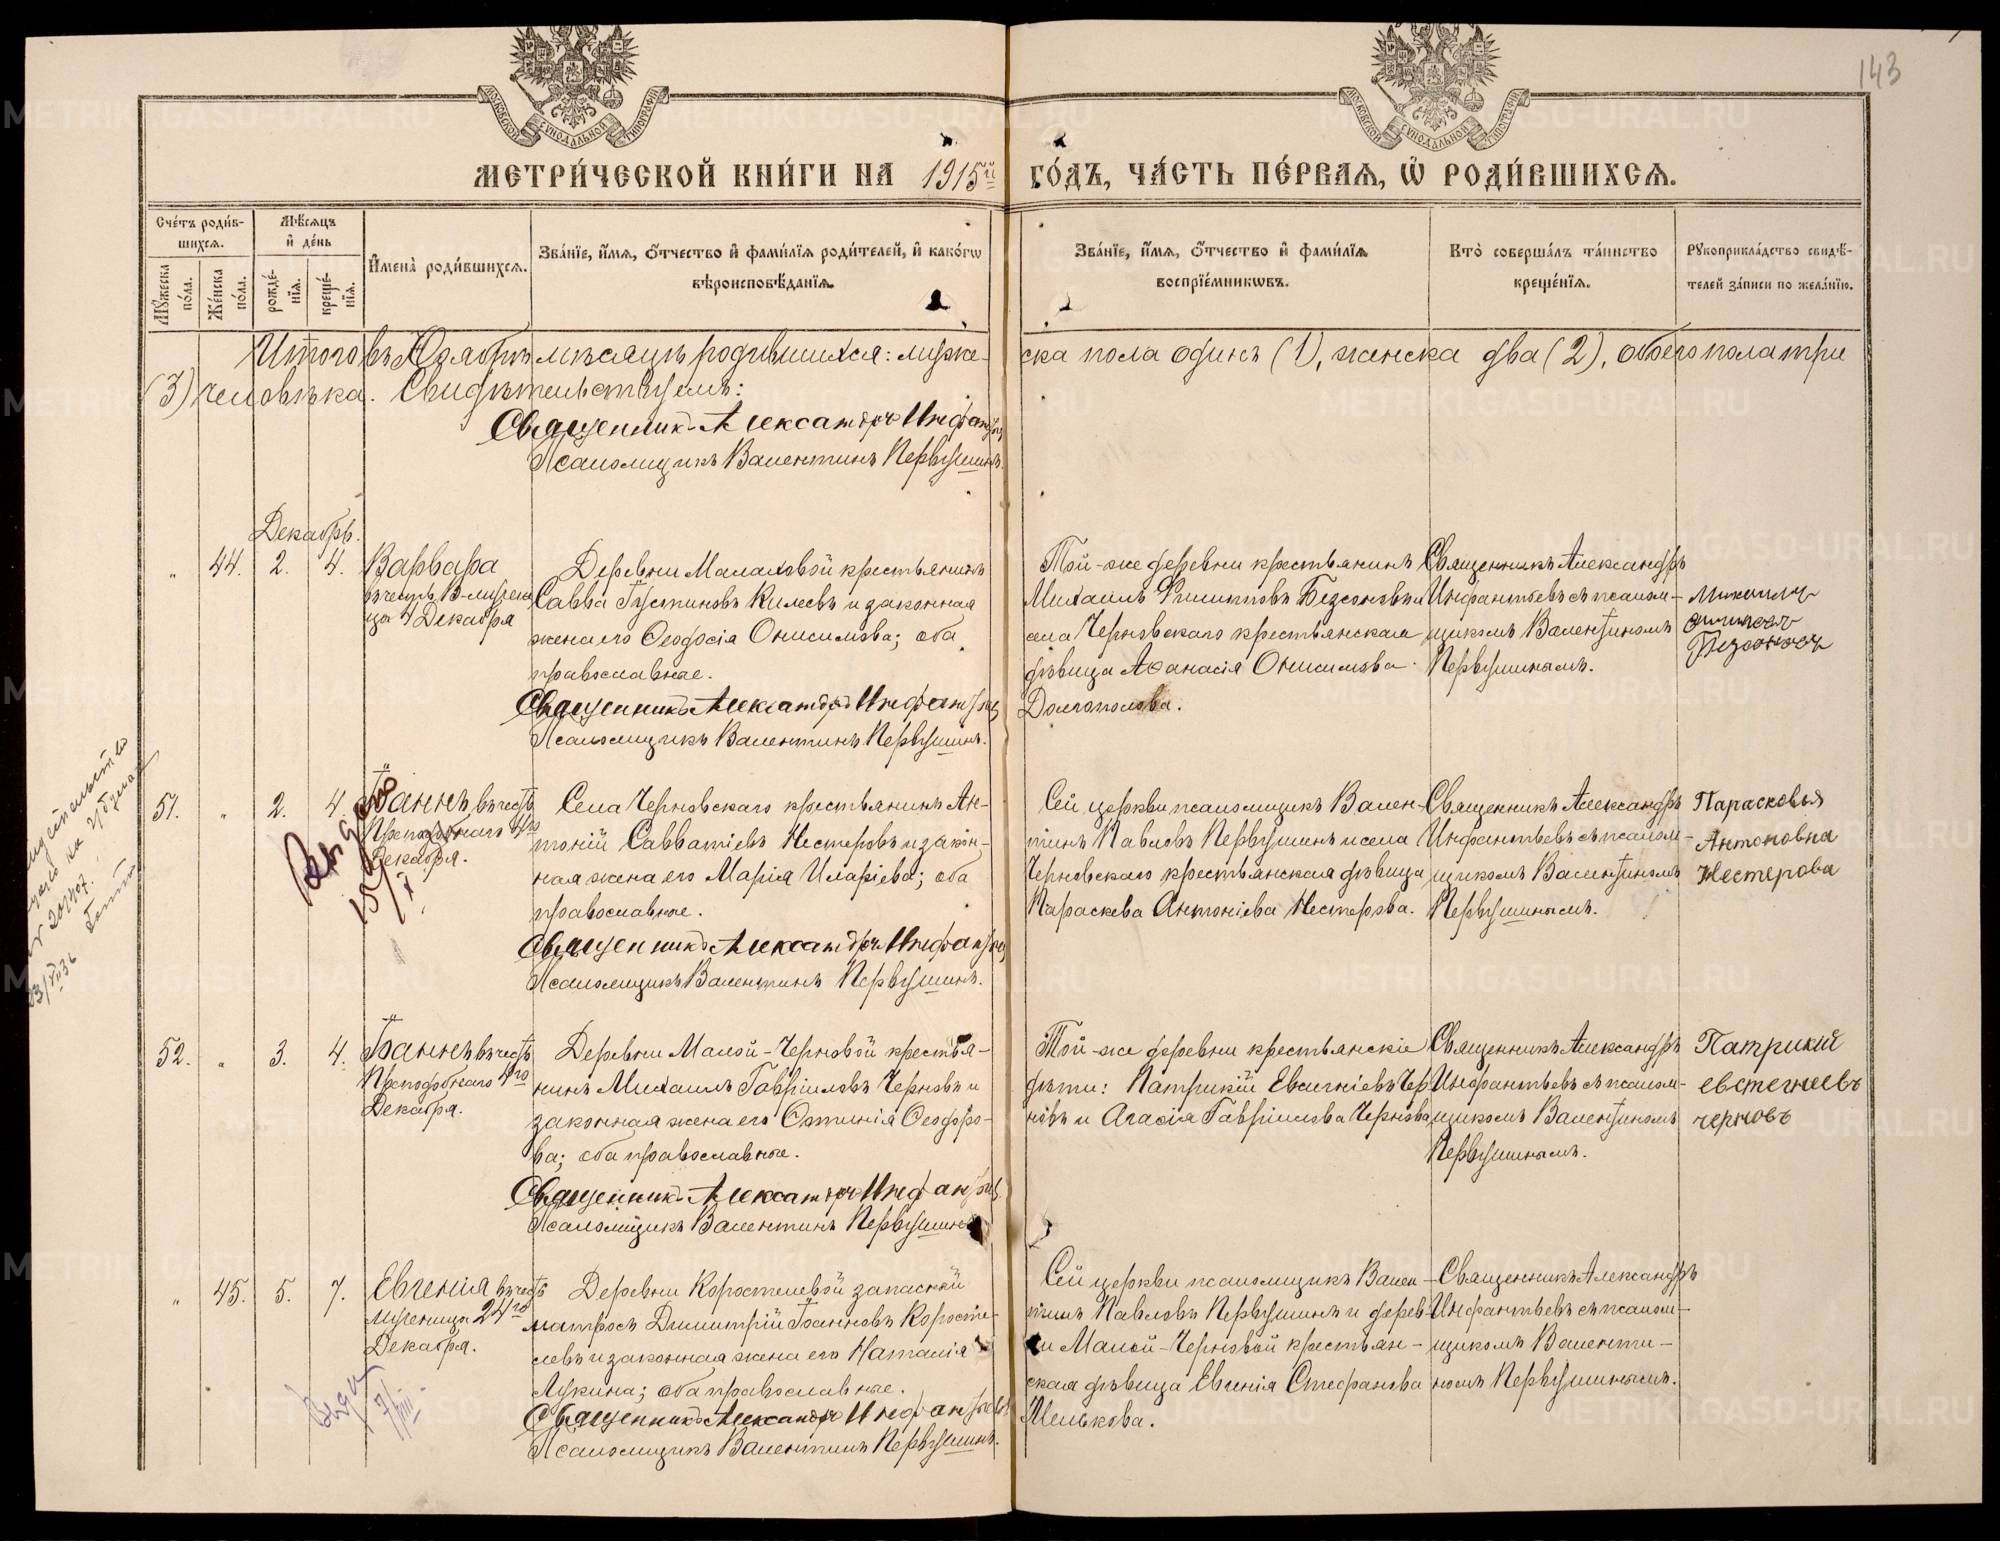 143
МОСКОВСКОЙ СѴНОДАЛЬНОЙ ТИПОГРАФІИ
МОСКОВСКОЙ СѴНОДАЛЬНОЙ ТИПОГРАФІИ
МЕТРИ́ЧЕСКОЙ КНИ́ГИ НА 1915й ГО́ДЪ, ЧА́СТЬ ПЕ́РВАЯ, Ѿ РОДИ́ВШИХСЯ.
Сче́тъ роди́в-
шихся.
Му́жеска по́ла.
Же́нска по́ла.
Мѣ́сяцъ
и҆ де́нь
рожде́-
нїя.
креще́-
нїя.
И҆мена̀ роди́вшихся.
Зва́нїе, и҆́мя, ѻ҆́тчество и҆ фами́лїя роди́телей, и҆ како́гѡ
вѣроисповѣ́данїя.
Зва́нїе, и҆́мя, ѻ҆́тчество и҆ фами́лїя
воспрїе́мникѡвъ.
Кто̀ соверша́лъ та́инство
креще́нїя.
Рꙋкоприкла́дство свидѣ́-
телей за́писи по жела́нїю.
Итого въ Ноябрѣ мѣсяцѣ родившихся: муже-
ска пола одинъ (1), женска два (2), обоего пола три
(3) человѣка. Свидѣтельствуемъ:
Священникъ Александръ Инфантьевъ
Псаломщикъ Валентинъ Первушинъ.
Декабрь.
„ 44. 2. 4.
Варвара
въ честь В-мучени
цы 4 Декабря
Деревни Малаховой крестьянинъ
Савва Іустиновъ Килевъ и законная
жена его Ѳеодосія Онисимова; оба
православные.
Священникъ Александръ Инфантьевъ
Псаломщикъ Валентинъ Первушинъ.
Той-же деревни крестьянинъ
Михаилъ Филипповъ Безсоновъ и
села Черновскаго крестьянская
дѣвица Аѳанасія Онисимова
Долгополова.
Священникъ Александръ
Инфантьевъ съ псалом-
щикомъ Валентиномъ
Первушинымъ.
Михаилъ
Филиповъ
Безсоновъ
51. „ 2. 4.
Іоаннъ въ честь
Преподобнаго 4го
Декабря.
Села Черновскаго крестьянинъ Ан-
тоній Савватіевъ Нестеровъ и закон-
ная жена его Марія Иларіева; оба
православные.
Священникъ Александръ Инфантьевъ
Псаломщикъ Валентинъ Первушинъ.
Сей церкви псаломщикъ Вален-
тинъ Павловъ Первушинъ и села
Черновскаго крестьянская дѣвица
Параскева Антоніева Нестерова.
Священникъ Александръ
Инфантьевъ съ псалом-
щикомъ Валентиномъ
Первушинымъ.
Парасковья
Антоновна
Нестерова
52. „ 3. 4.
Іоаннъ въ честь
Преподобнаго 4го
Декабря.
Деревни Малой-Черновой крестья-
нинъ Михаилъ Гавріиловъ Черновъ и
законная жена его Фотинія Ѳеодоро-
ва; оба православные.
Священникъ Александръ Инфантьевъ
Псаломщикъ Валентинъ Первушинъ
Той-же деревни крестьянскіе
дѣти: Патрикій Евсигніевъ Чер
новъ и Агаѳія Гавріилова Чернова
Священникъ Александръ
Инфантьевъ съ псалом-
щикомъ Валентиномъ
Первушинымъ.
Патрикий
евстегнеевъ
черновъ
„ 45. 5. 7.
Евгенія въ честь
мученицы 24го
Декабря.
Деревни Коростелевой запасной
матросъ Димитрій Іоанновъ Коросте-
левъ и законная жена его Наталія
Лукина; оба православные.
Священникъ Александръ Инфантьевъ
Псаломщикъ Валентинъ Первушинъ.
Сей церкви псаломщикъ Вален-
тинъ Павловъ Первушинъ и дерев
ни Малой-Черновой крестьян-
ская дѣвица Евгенія Стефанова
Мелькова.
Священникъ Александръ
Инфантьевъ съ псалом-
щикомъ Валенти-
номъ Первушинымъ.
METRIKI.GASO-URAL.RU